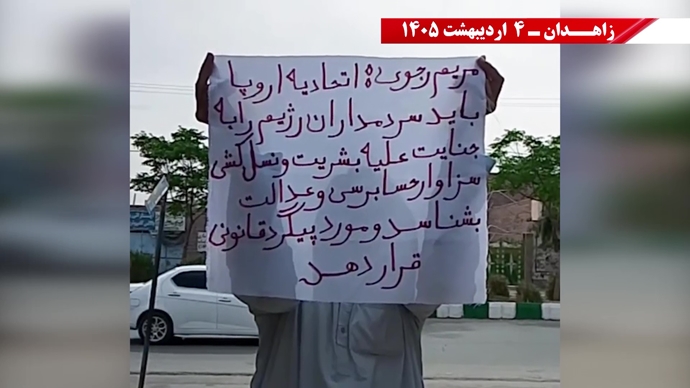 زاهدان ـ ۴ اردیبهشت ۱۴۰۵
مریم رجوی: اتحادیه اروپا
باید سردمداران رژیم را به
جنایت علیه بشریت و نسل کشی
سزاوار حسابرسی و عدالت
بشناسد و مورد پیگرد قانونی
قرار دهد